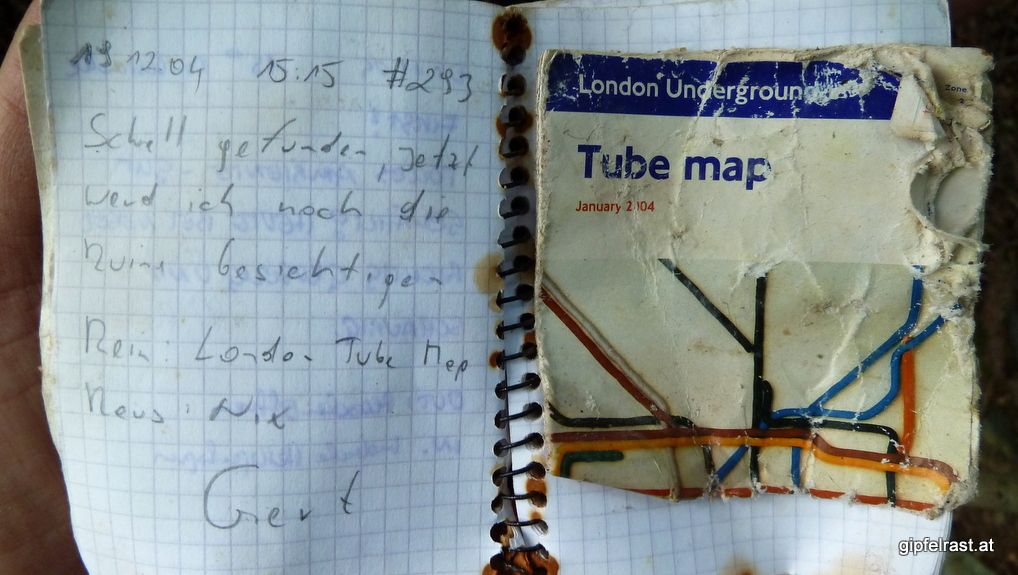 19 12.04 15:15 #293
Schnell gefunden, Jetzt
werd ich noch die
Ruine besichtigen
Rein: London Tube Map
Raus: Nix
Gert
London Underground
Zone
Tube map
January 2004
gipfelrast.at